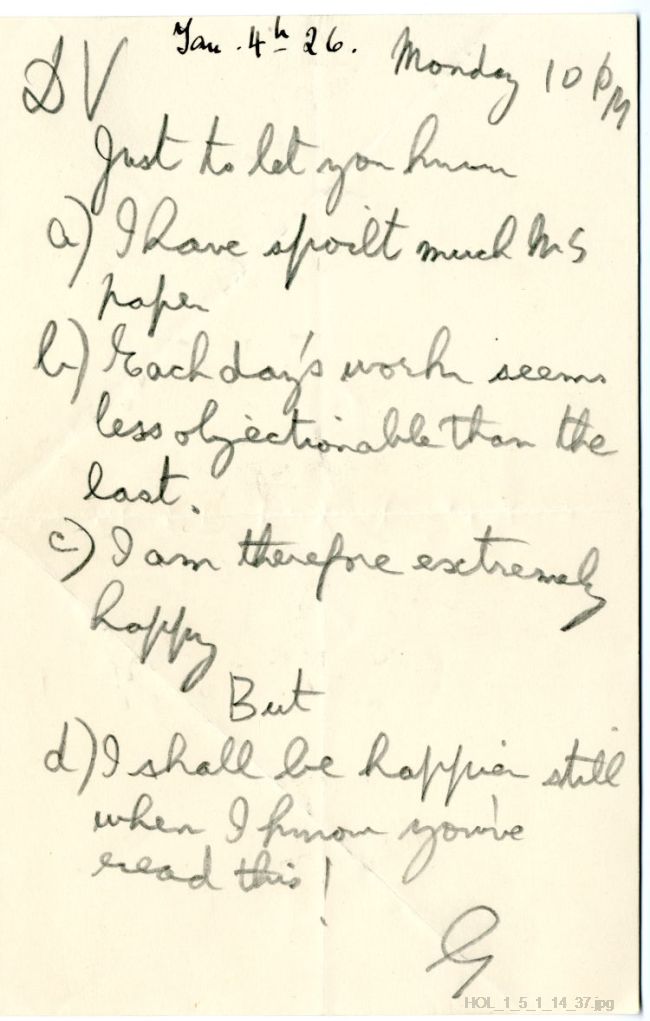 Jan. 4th 26.
Monday 10 PM
DV
Just to let you know
a) I have spoilt much MS
paper
b) Each day's work seems
less objectionable than the
last.
c) I am therefore extremely
happy
But
d) I shall be happier still
when I know you've
read this!
G
HOL_1_5_1_14_37.jpg